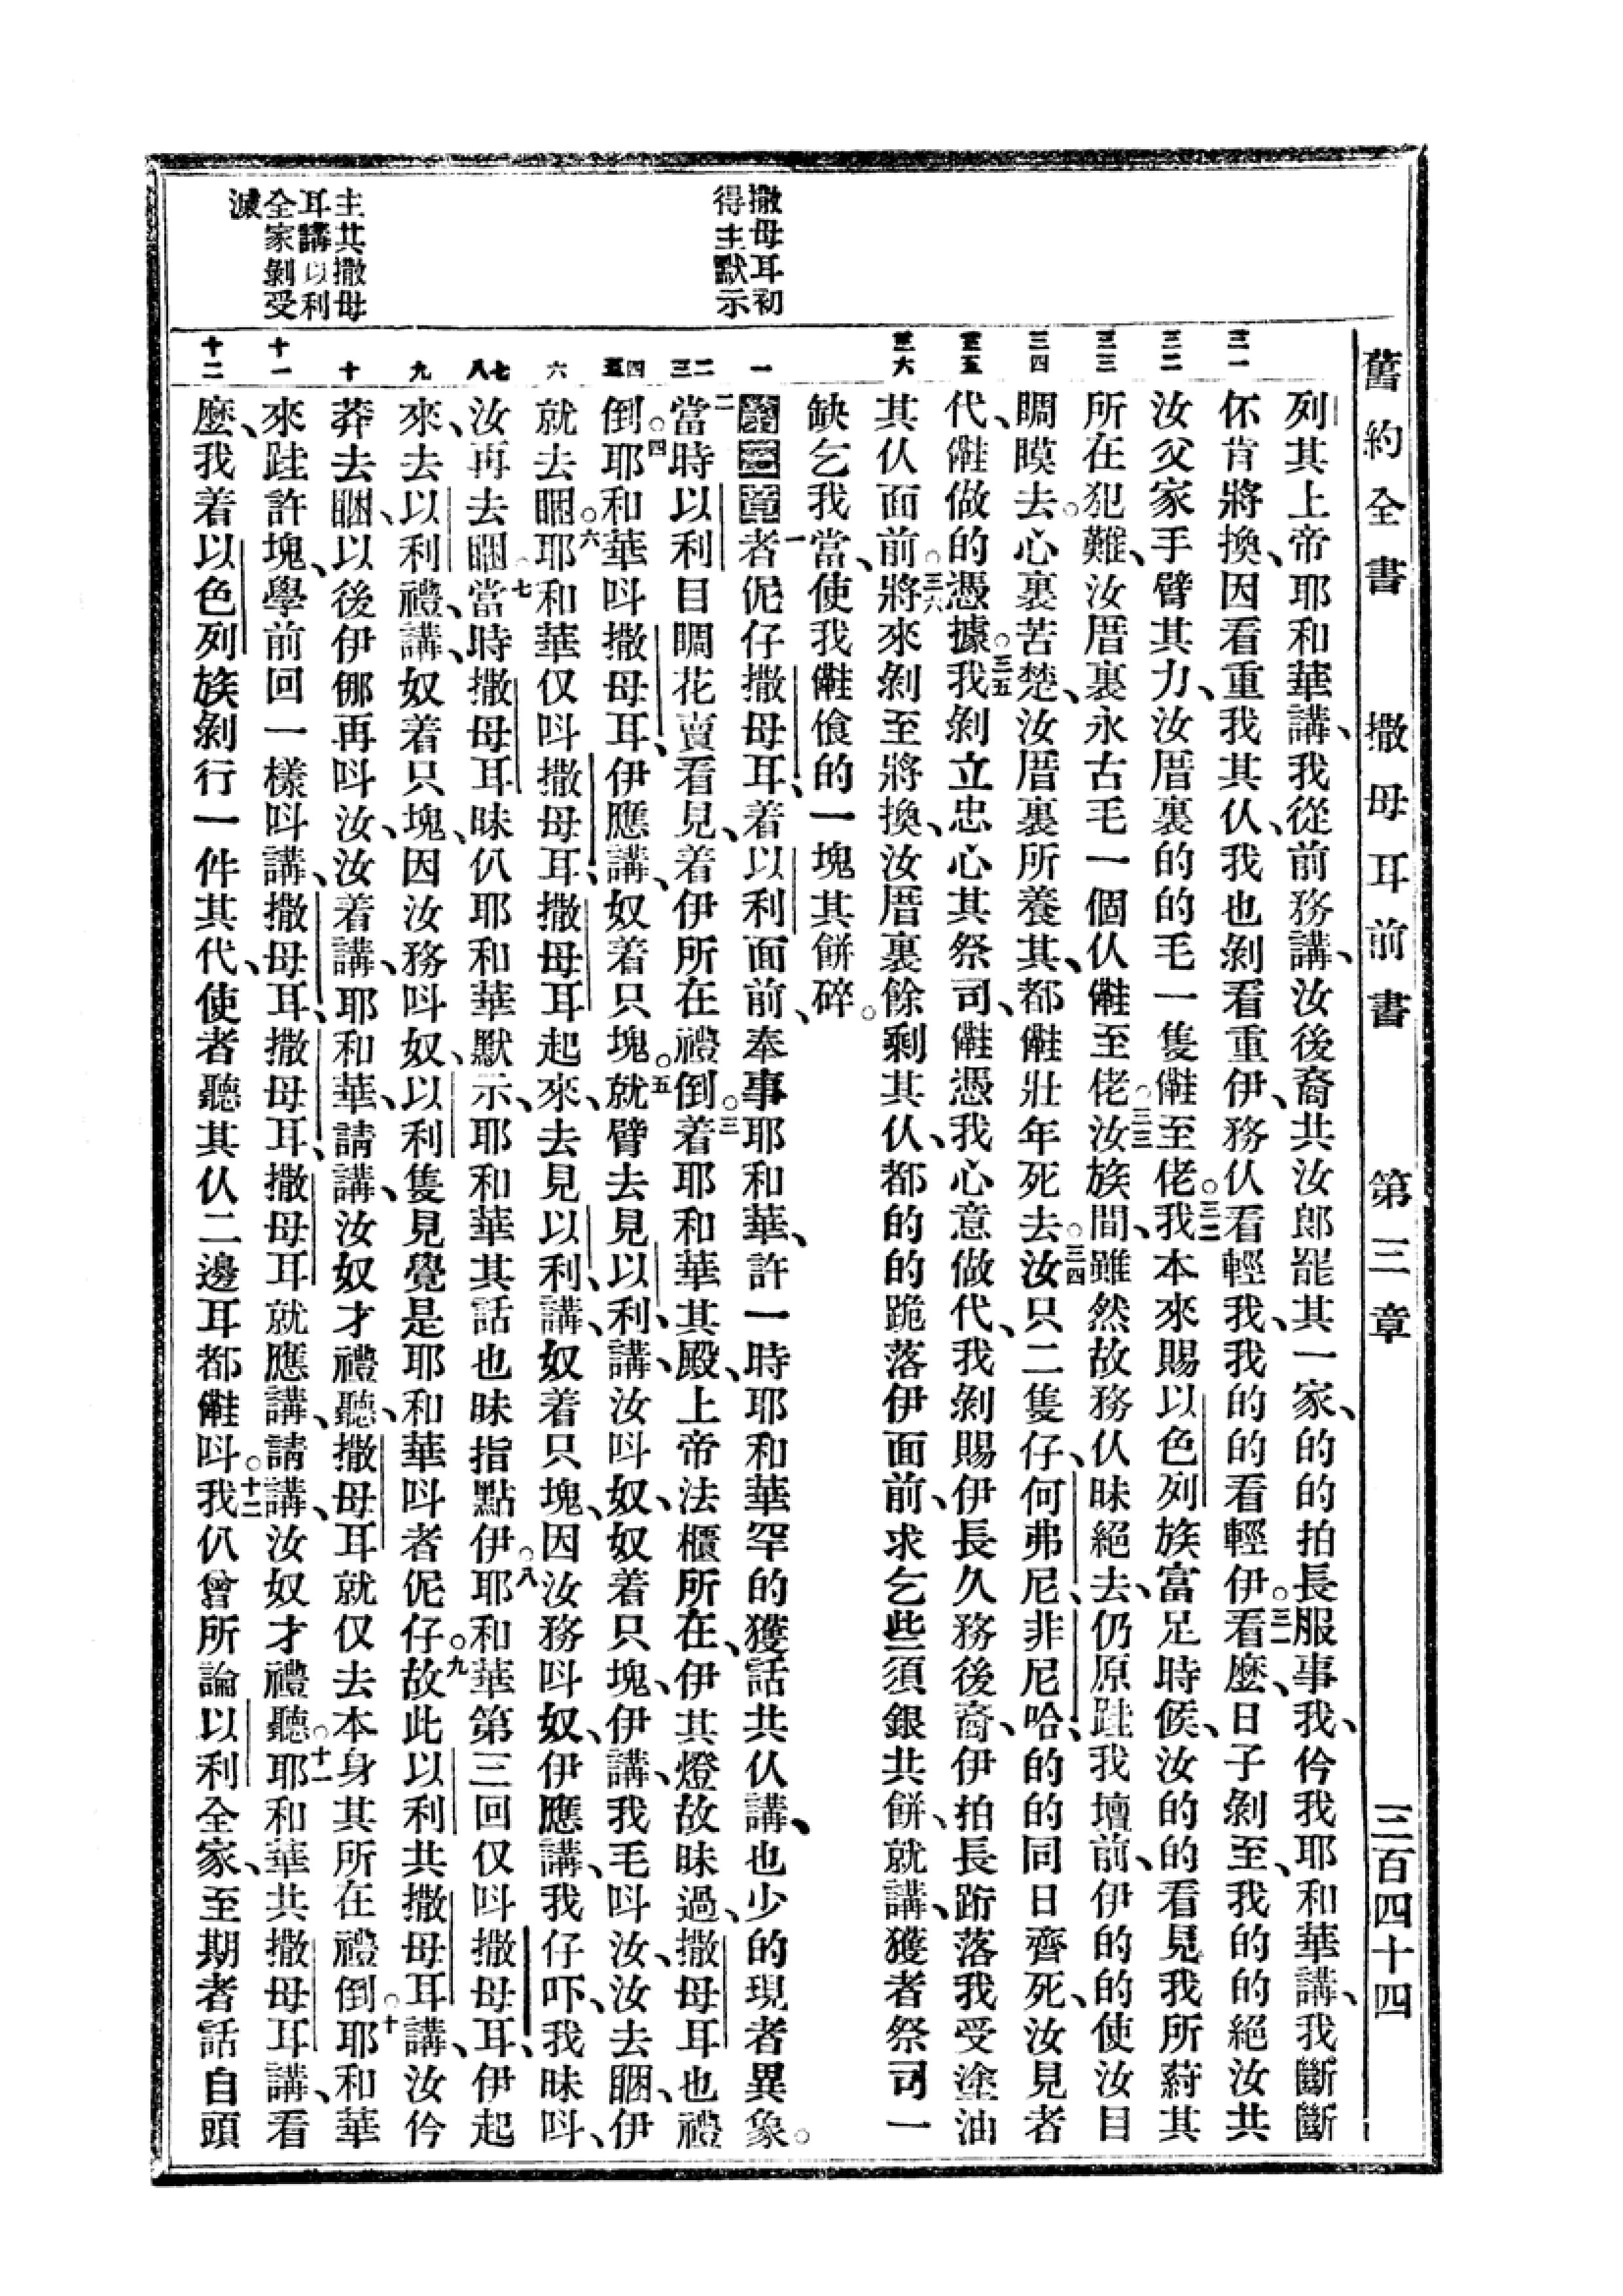 舊約全書　撒母耳前書　第三章　三百四十四
撒母耳初
得主默示
主共撒母
耳講以利
全家剝受
滅
三一
三二
三三
三四
三五
三六
一
二三
四五
六
七八
九
十
十一
十二
列其上帝耶和華講、我從前務講、汝後裔共汝郎罷其一家、的的拍長服事我、仱我耶和華講、我斷斷
伓肯將換、因看重我其仫、我也剝看重伊、務仫看輕我、我的的看輕伊。三一看麽、日子剝至、我的的絕汝共
汝父家手臂其力、汝厝裏的的毛一隻𣍐至佬。三二我本來賜以色列族富足時候、汝的的看見我所藇其
所在犯難、汝厝裏永古毛一個仫𣍐至佬。三三汝族間、雖然故務仫昧絕去、仍原跬我壇前、伊的的使汝目
睭瞙去。心裏苦楚、汝厝裏所養其、都𣍐壯年死去。三四汝只二隻仔、何弗尼、非尼哈、的的同日齊死、汝見者
代、𣍐做的憑據。三五我剝立忠心其祭司、𣍐憑我心意做代、我剝賜伊長久務後裔、伊拍長跡落我受塗油
其仫面前。三六將來剝至將換、汝厝裏餘剩其仫、都的的跪落伊面前、求乞些須銀共餅、就講、獲者祭司一
缺乞我當、使我𣍐飡的一塊其餅碎。
第三章一者伲仔撒母耳、着以利面前、奉事耶和華、許一時耶和華罕的獲話共仫講、也少的現者異象。
二當時以利目睭花賣看見、着伊所在禮倒。三着耶和華其殿、上帝法櫃所在、伊其燈故昧過、撒母耳也禮
倒。四耶和華呌撒母耳、伊應講、奴着只塊。五就臂去見以利、講、汝呌奴、奴着只塊、伊講、我毛呌汝、汝去睏、伊
就去睏。六耶和華仅呌撒母耳、撒母耳起來、去見以利、講、奴着只塊、因汝務呌奴、伊應講、我仔吓、我昧呌、
汝再去睏。七當時撒母耳昧仈耶和華默示、耶和華其話也昧指點伊。八耶和華第三回仅呌撒母耳、伊起
來、去以利禮、講、奴着只塊、因汝務呌奴、以利隻見覺是耶和華呌者伲仔。九故此以利共撒母耳講、汝仱
莽去睏、以後伊㑚再呌汝、汝着講、耶和華、請講、汝奴才禮聽、撒母耳就仅去本身其所在禮倒。十耶和華
來跬許塊、學前回一樣呌講、撒母耳、撒母耳、撒母耳就應講、請講、汝奴才禮聽。十一耶和華共撒母耳講、看
麽、我着以色列族剝行一件其代、使者聽其仫二邊耳都𣍐呌。十二我仈曾所論以利全家、至期者話自頭